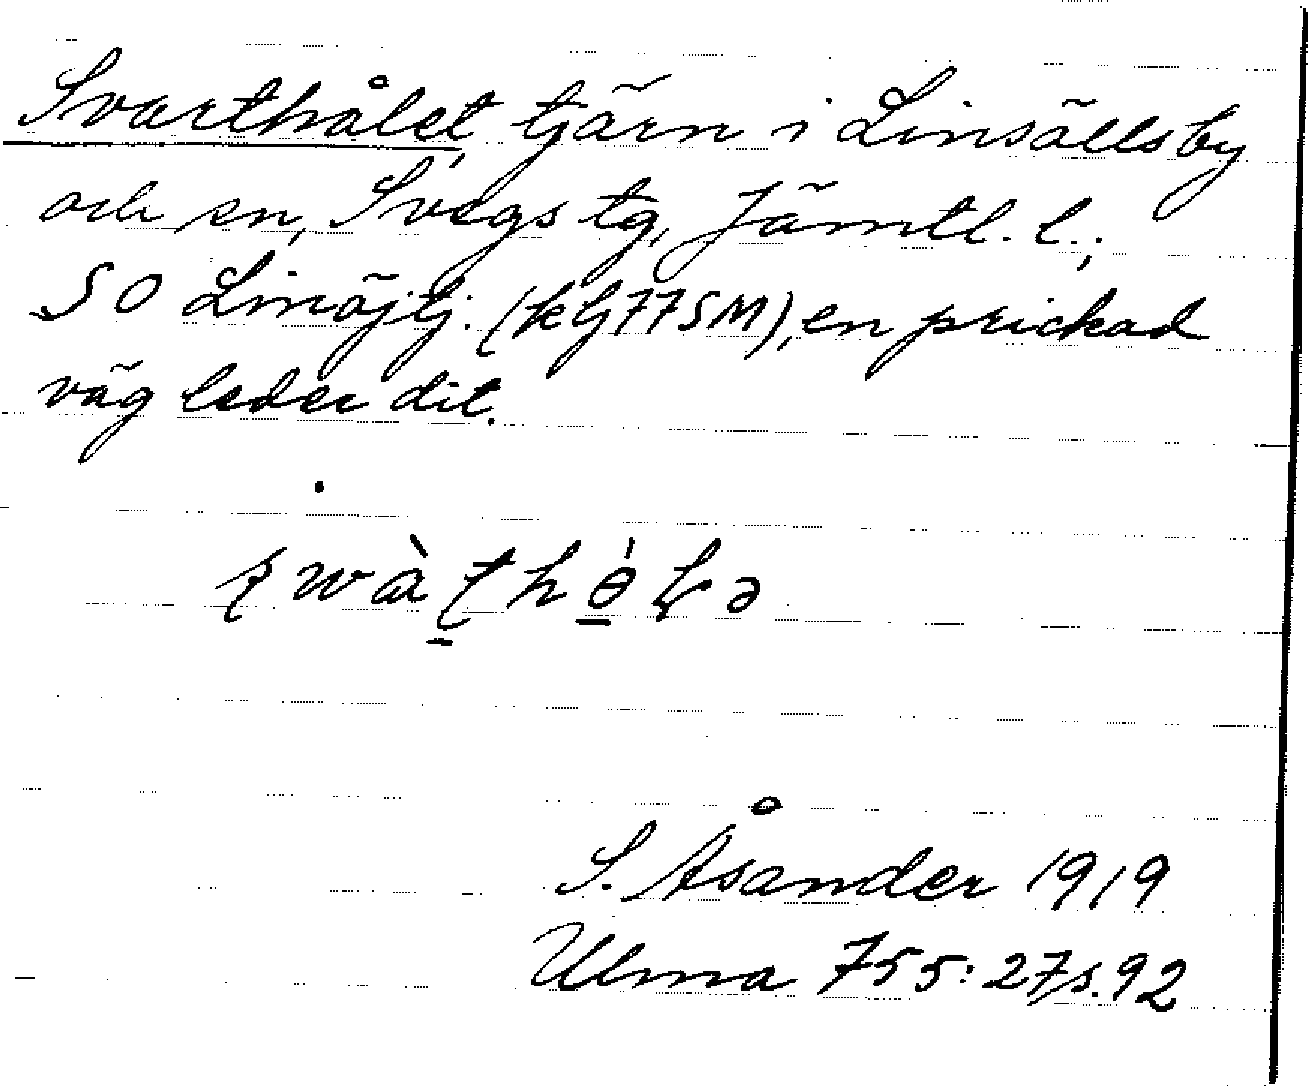 Svarthålet, tjärn i Linsälls by
och sn, Svegs tg, Jämtl. l.;
SO Linöjtj. (klj77SM), en prickad
väg leder dit.
S. Åsander 1919
Ulma 755:27 s. 92